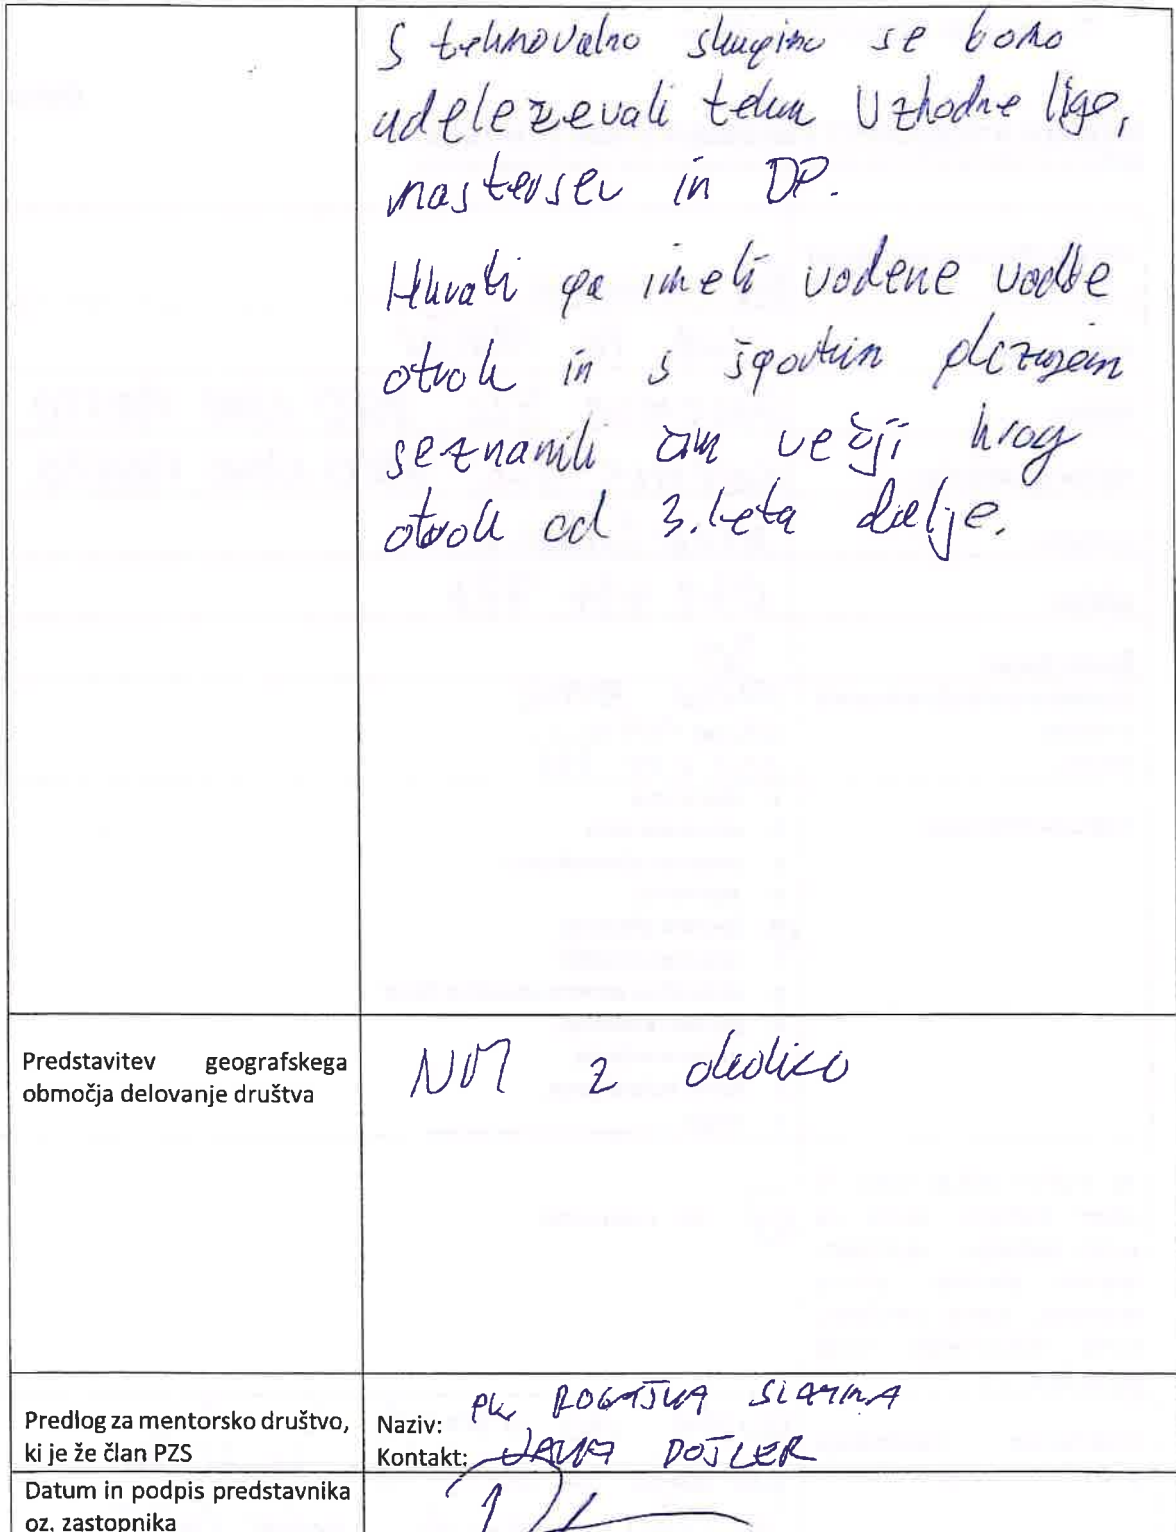 S tekmovalno skupino se bomo
udeleževali tekem Vzhodne lige,
mastersev in DP.
Hkrati pa imeli vodene vadbe
otrok in s športnim plezanjem
seznanili čim večji krog
otrok od 3. leta dalje.
Predstavitev geografskega
območja delovanje društva
NM z okolico
Predlog za mentorsko društvo,
ki je že član PZS
Naziv: PK ROGAŠKA SLATINA
Kontakt: JANJA DOJLER
Datum in podpis predstavnika
oz. zastopnika